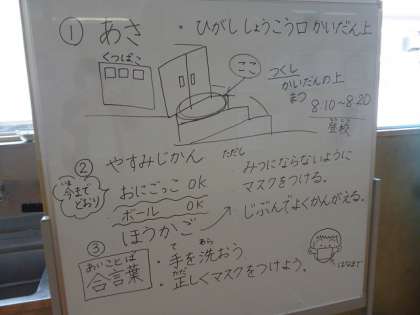 ① あさ ・ひがししょうこう口 かいだん上
くつばこ
ここ
つくし
かいだんの上
まつ
8:10~8:20
登校
② やすみじかん ただし
今までどおり
おにごっこ OK
ボール OK
ほうかご
みつにならないように
マスクをつける。
じぶんでよくかんがえる。
③ あいことば
合言葉
・手を洗おう
て あら
・正しくマスクをつけよう。
ただ